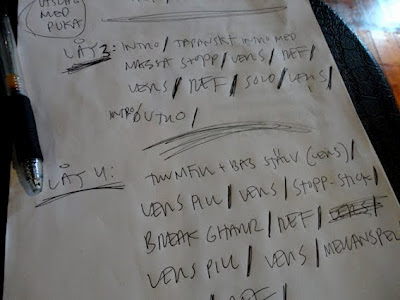 MED
PUKA
LÅT 3: INTRO / JAPANSKT INTRO MED
MASSA STOPP / VERS / REF /
VERS / REF / SOLO / VERS /
INTRO/OUTRO /
LÅT 4: + BAS (VERS) /
VERS PILL / VERS / STOPP-STICK /
BREAK / REF / VERS /
VERS PILL / VERS / MELLANSPEL
/ REF /